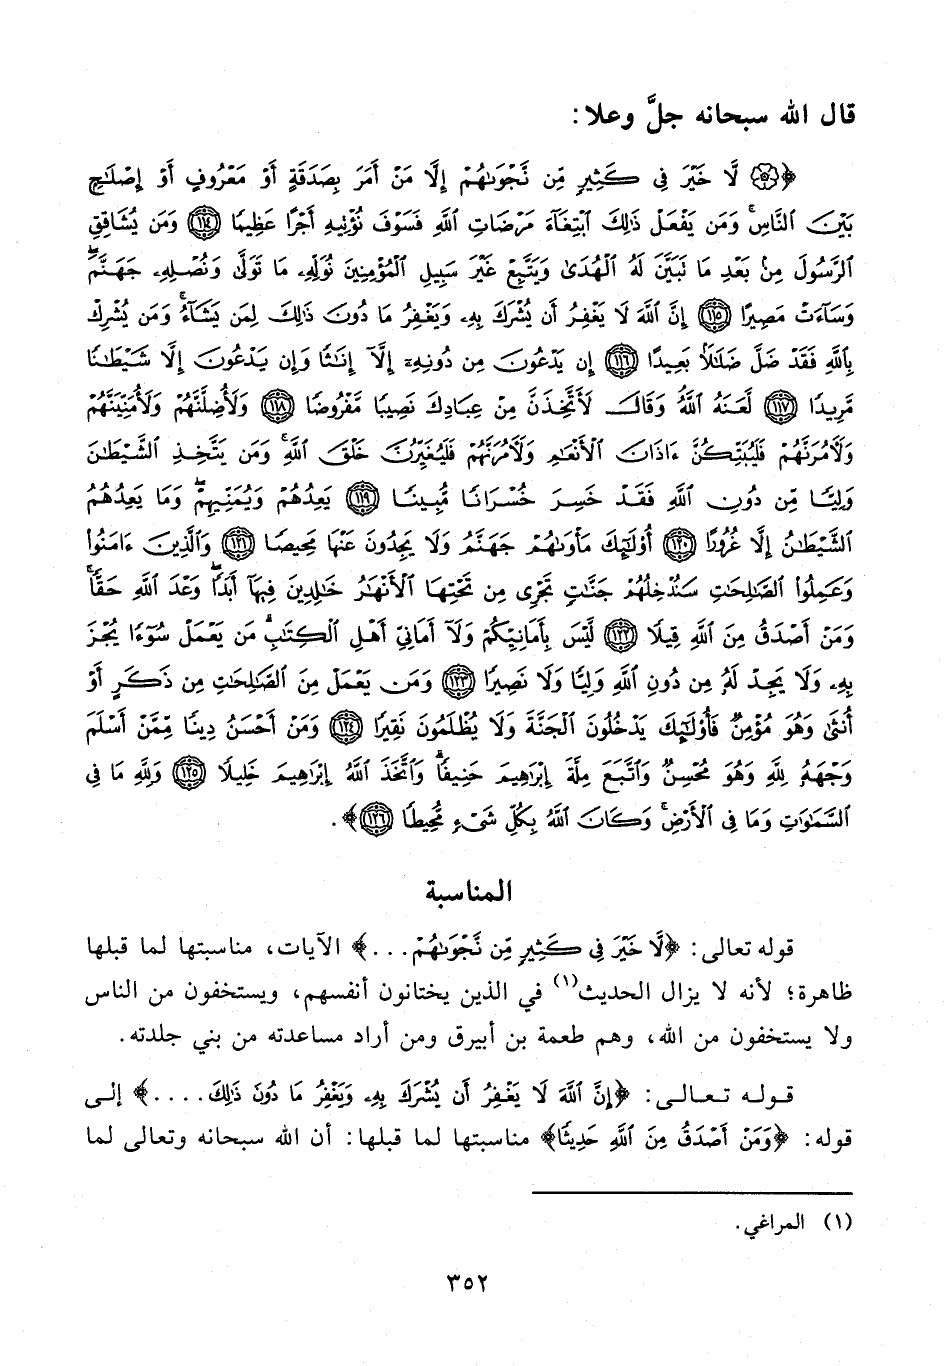 قال الله سبحانه جلَّ وعلا:
﴿۞ لَّا خَيْرَ فِي كَثِيرٍ مِّن نَّجْوَىٰهُمْ إِلَّا مَنْ أَمَرَ بِصَدَقَةٍ أَوْ مَعْرُوفٍ أَوْ إِصْلَٰحٍ
بَيْنَ ٱلنَّاسِ ۚ وَمَن يَفْعَلْ ذَٰلِكَ ٱبْتِغَآءَ مَرْضَاتِ ٱللَّهِ فَسَوْفَ نُؤْتِيهِ أَجْرًا عَظِيمًا ﴿١١٤﴾ وَمَن يُشَاقِقِ
ٱلرَّسُولَ مِنۢ بَعْدِ مَا تَبَيَّنَ لَهُ ٱلْهُدَىٰ وَيَتَّبِعْ غَيْرَ سَبِيلِ ٱلْمُؤْمِنِينَ نُوَلِّهِۦ مَا تَوَلَّىٰ وَنُصْلِهِۦ جَهَنَّمَ ۖ
وَسَآءَتْ مَصِيرًا ﴿١١٥﴾ إِنَّ ٱللَّهَ لَا يَغْفِرُ أَن يُشْرَكَ بِهِۦ وَيَغْفِرُ مَا دُونَ ذَٰلِكَ لِمَن يَشَآءُ ۚ وَمَن يُشْرِكْ
بِٱللَّهِ فَقَدْ ضَلَّ ضَلَٰلًۢا بَعِيدًا ﴿١١٦﴾ إِن يَدْعُونَ مِن دُونِهِۦٓ إِلَّآ إِنَٰثًا وَإِن يَدْعُونَ إِلَّا شَيْطَٰنًا
مَّرِيدًا ﴿١١٧﴾ لَّعَنَهُ ٱللَّهُ وَقَالَ لَأَتَّخِذَنَّ مِنْ عِبَادِكَ نَصِيبًا مَّفْرُوضًا ﴿١١٨﴾ وَلَأُضِلَّنَّهُمْ وَلَأُمَنِّيَنَّهُمْ
وَلَءَامُرَنَّهُمْ فَلَيُبَتِّكُنَّ ءَاذَانَ ٱلْأَنْعَٰمِ وَلَءَامُرَنَّهُمْ فَلَيُغَيِّرُنَّ خَلْقَ ٱللَّهِ ۚ وَمَن يَتَّخِذِ ٱلشَّيْطَٰنَ
وَلِيًّا مِّن دُونِ ٱللَّهِ فَقَدْ خَسِرَ خُسْرَانًا مُّبِينًا ﴿١١٩﴾ يَعِدُهُمْ وَيُمَنِّيهِمْ ۖ وَمَا يَعِدُهُمُ
ٱلشَّيْطَٰنُ إِلَّا غُرُورًا ﴿١٢٠﴾ أُو۟لَٰٓئِكَ مَأْوَىٰهُمْ جَهَنَّمُ وَلَا يَجِدُونَ عَنْهَا مَحِيصًا ﴿١٢١﴾ وَٱلَّذِينَ ءَامَنُوا۟
وَعَمِلُوا۟ ٱلصَّٰلِحَٰتِ سَنُدْخِلُهُمْ جَنَّٰتٍ تَجْرِى مِن تَحْتِهَا ٱلْأَنْهَٰرُ خَٰلِدِينَ فِيهَآ أَبَدًا ۖ وَعْدَ ٱللَّهِ حَقًّا ۚ
وَمَنْ أَصْدَقُ مِنَ ٱللَّهِ قِيلًا ﴿١٢٢﴾ لَّيْسَ بِأَمَانِيِّكُمْ وَلَآ أَمَانِىِّ أَهْلِ ٱلْكِتَٰبِ ۗ مَن يَعْمَلْ سُوٓءًا يُجْزَ
بِهِۦ وَلَا يَجِدْ لَهُۥ مِن دُونِ ٱللَّهِ وَلِيًّا وَلَا نَصِيرًا ﴿١٢٣﴾ وَمَن يَعْمَلْ مِنَ ٱلصَّٰلِحَٰتِ مِن ذَكَرٍ أَوْ
أُنثَىٰ وَهُوَ مُؤْمِنٌ فَأُو۟لَٰٓئِكَ يَدْخُلُونَ ٱلْجَنَّةَ وَلَا يُظْلَمُونَ نَقِيرًا ﴿١٢٤﴾ وَمَنْ أَحْسَنُ دِينًا مِّمَّنْ أَسْلَمَ
وَجْهَهُۥ لِلَّهِ وَهُوَ مُحْسِنٌ وَٱتَّبَعَ مِلَّةَ إِبْرَٰهِيمَ حَنِيفًا ۗ وَٱتَّخَذَ ٱللَّهُ إِبْرَٰهِيمَ خَلِيلًا ﴿١٢٥﴾ وَلِلَّهِ مَا فِى
ٱلسَّمَٰوَٰتِ وَمَا فِى ٱلْأَرْضِ ۚ وَكَانَ ٱللَّهُ بِكُلِّ شَىْءٍ مُّحِيطًا ﴿١٢٦﴾﴾.
المناسبة
قوله تعالى: ﴿لَّا خَيْرَ فِي كَثِيرٍ مِّن نَّجْوَىٰهُمْ...﴾ الآيات، مناسبتها لما قبلها
ظاهرة؛ لأنه لا يزال الحديث(١) في الذين يختانون أنفسهم، ويستخفون من الناس
ولا يستخفون من الله، وهم طعمة بن أبيرق ومن أراد مساعدته من بني جلدته.
قوله تعالى: ﴿إِنَّ ٱللَّهَ لَا يَغْفِرُ أَن يُشْرَكَ بِهِۦ وَيَغْفِرُ مَا دُونَ ذَٰلِكَ....﴾ إلى
قوله: ﴿وَمَنْ أَصْدَقُ مِنَ ٱللَّهِ حَدِيثًا﴾ مناسبتها لما قبلها: أن الله سبحانه وتعالى لما
(١) المراغي.
٣٥٢